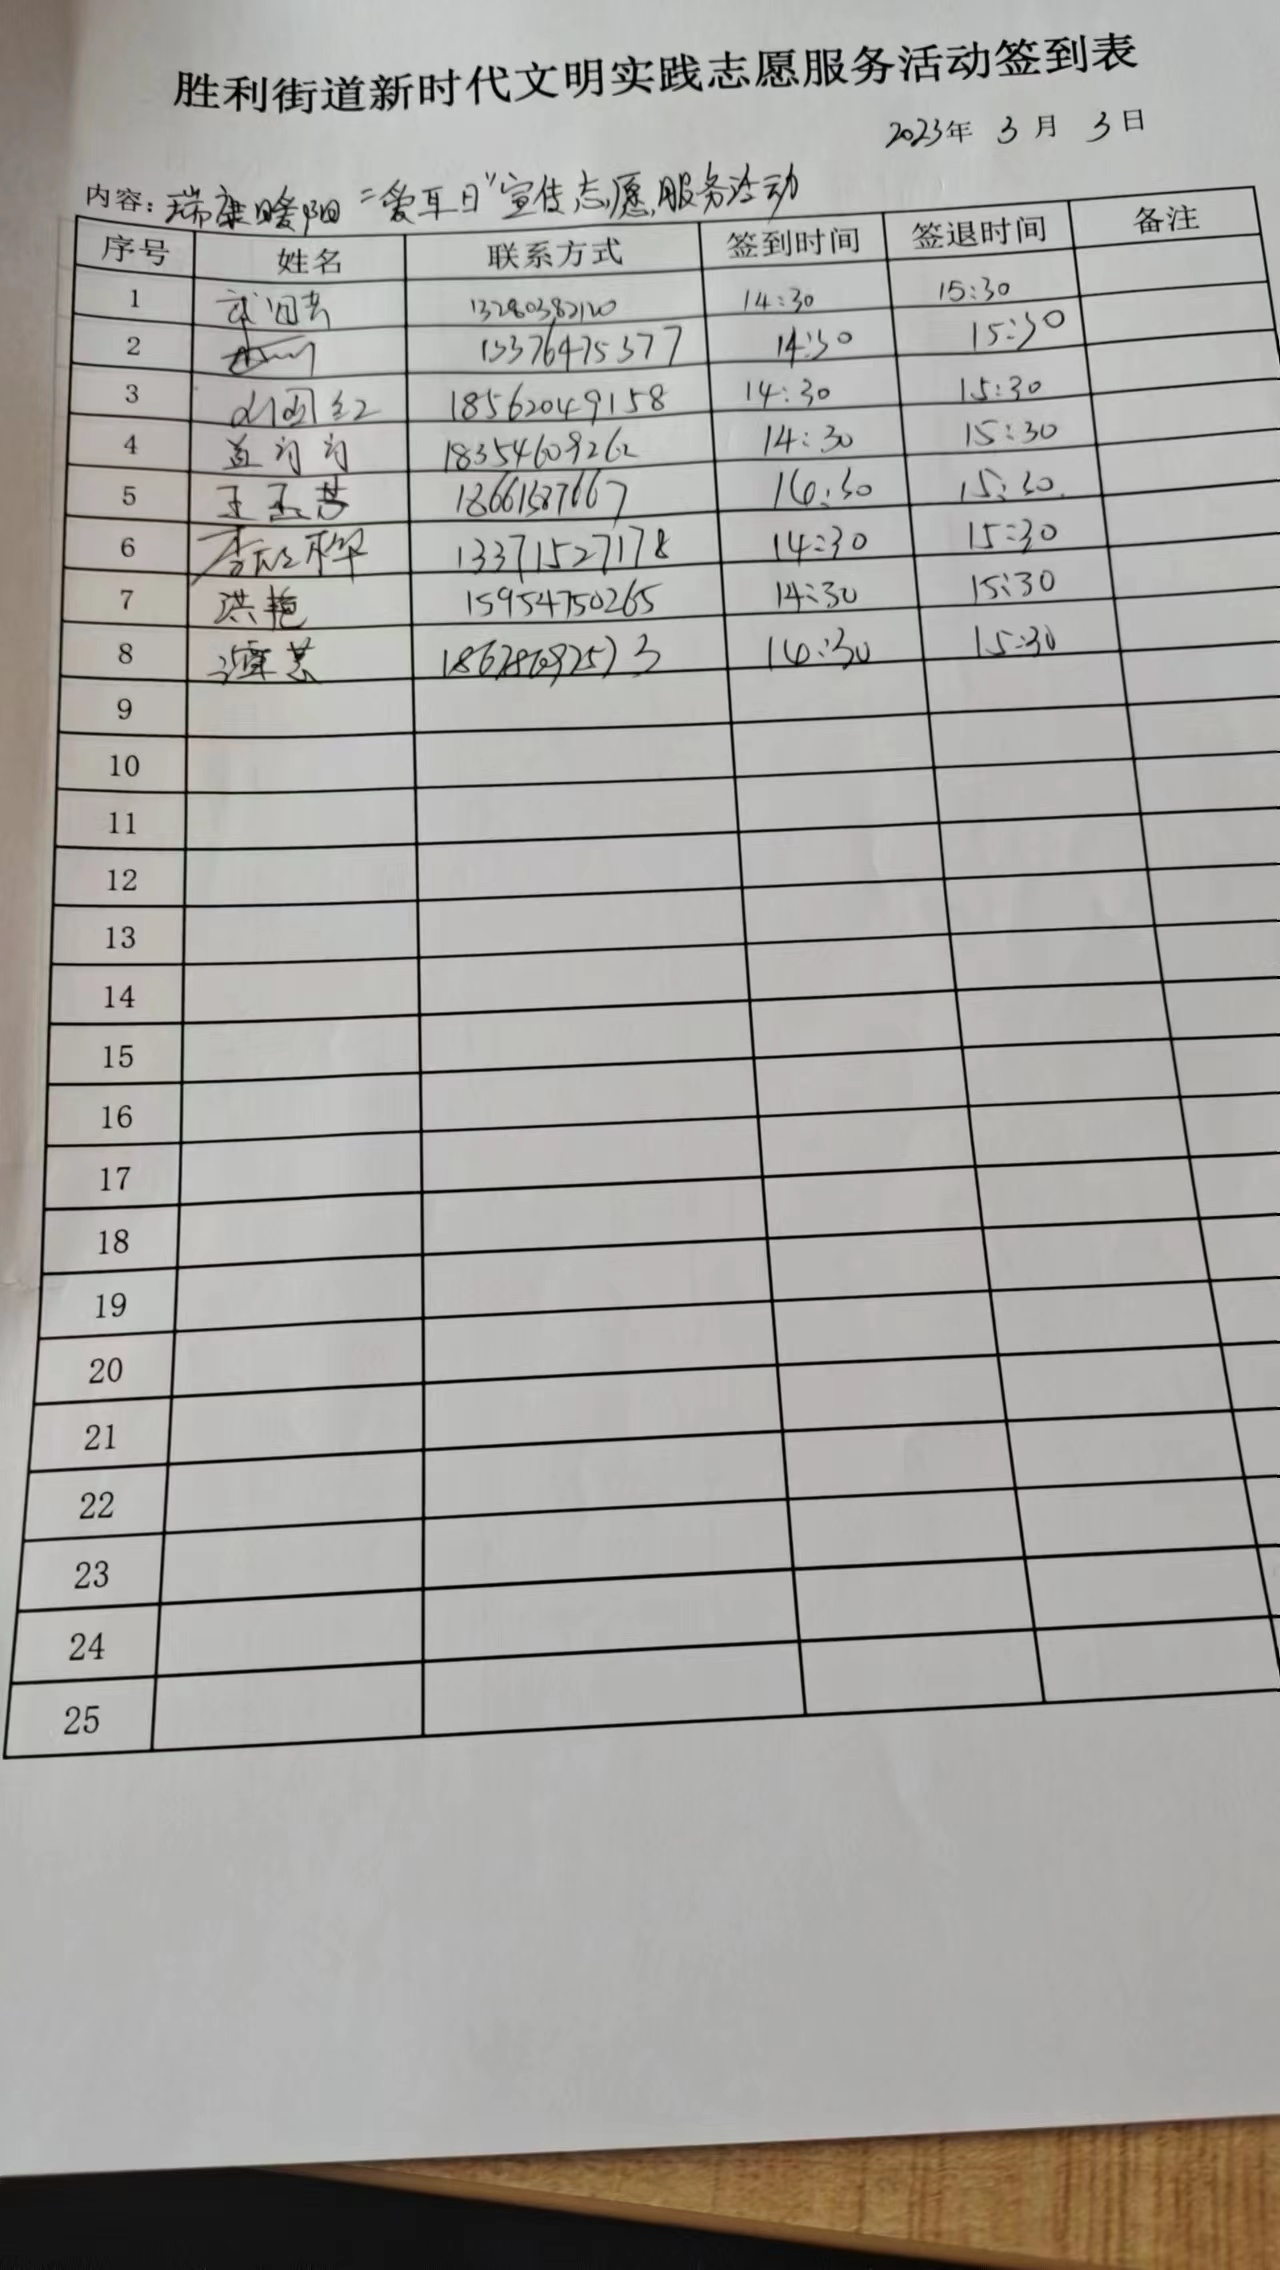 胜利街道新时代文明实践志愿服务活动签到表
2023年 3月 3日
内容：瑞康暖阳“爱耳日”宣传志愿服务活动
序号 姓名 联系方式 签到时间 签退时间 备注
1 13280382120 14:30 15:30
2 13376475377 14:30 15:30
3 18562049158 14:30 15:30
4 18354609262 14:30 15:30
5 王孟慧 14:30 15:30
6 13371527178 14:30 15:30
7 洪艳 15954750265 14:30 15:30
8 14:30 15:30
9
10
11
12
13
14
15
16
17
18
19
20
21
22
23
24
25